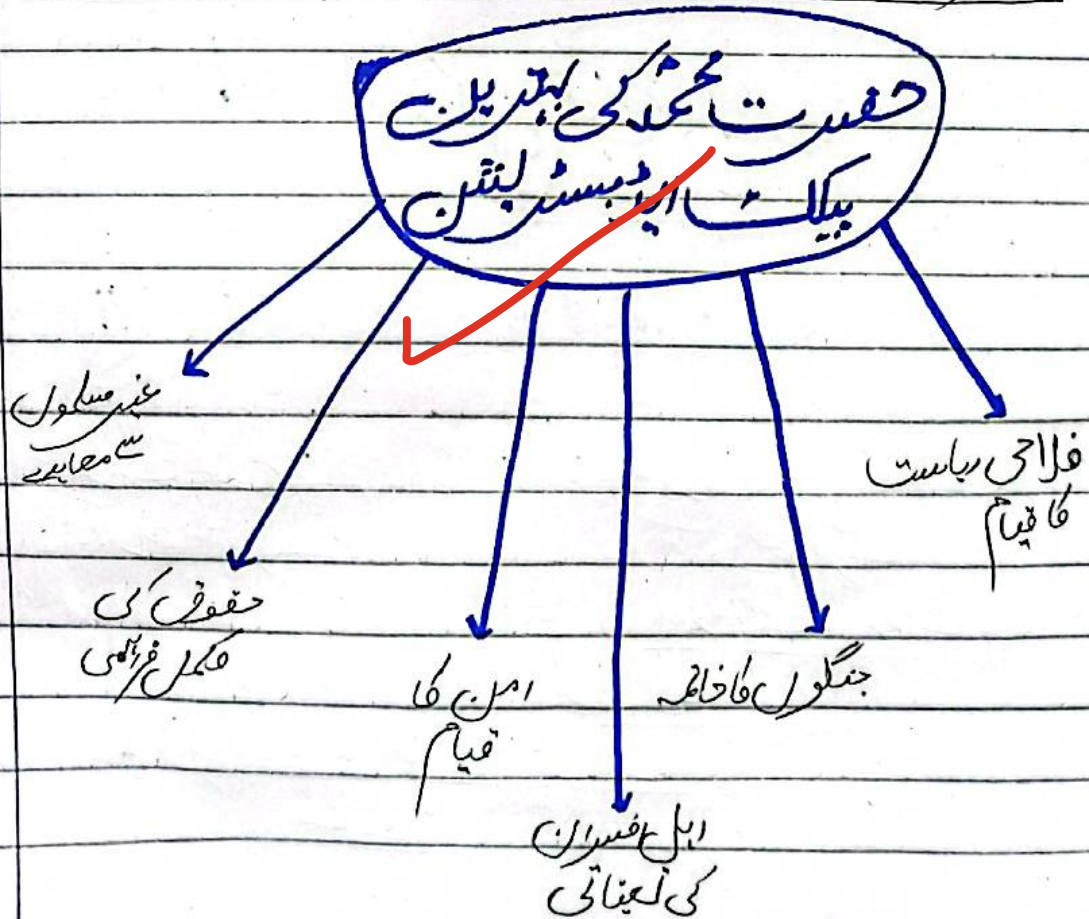 حضرت محمدؐ کی بہترین
پبلک ایڈمسٹریشن
فلاحی ریاست
کا قیام
جنگوں کا خاتمہ
اہل افسران
کی تعیناتی
امن کا
قیام
حقوق کی
مکمل فراہمی
غیر مسلموں
سے معاہدے